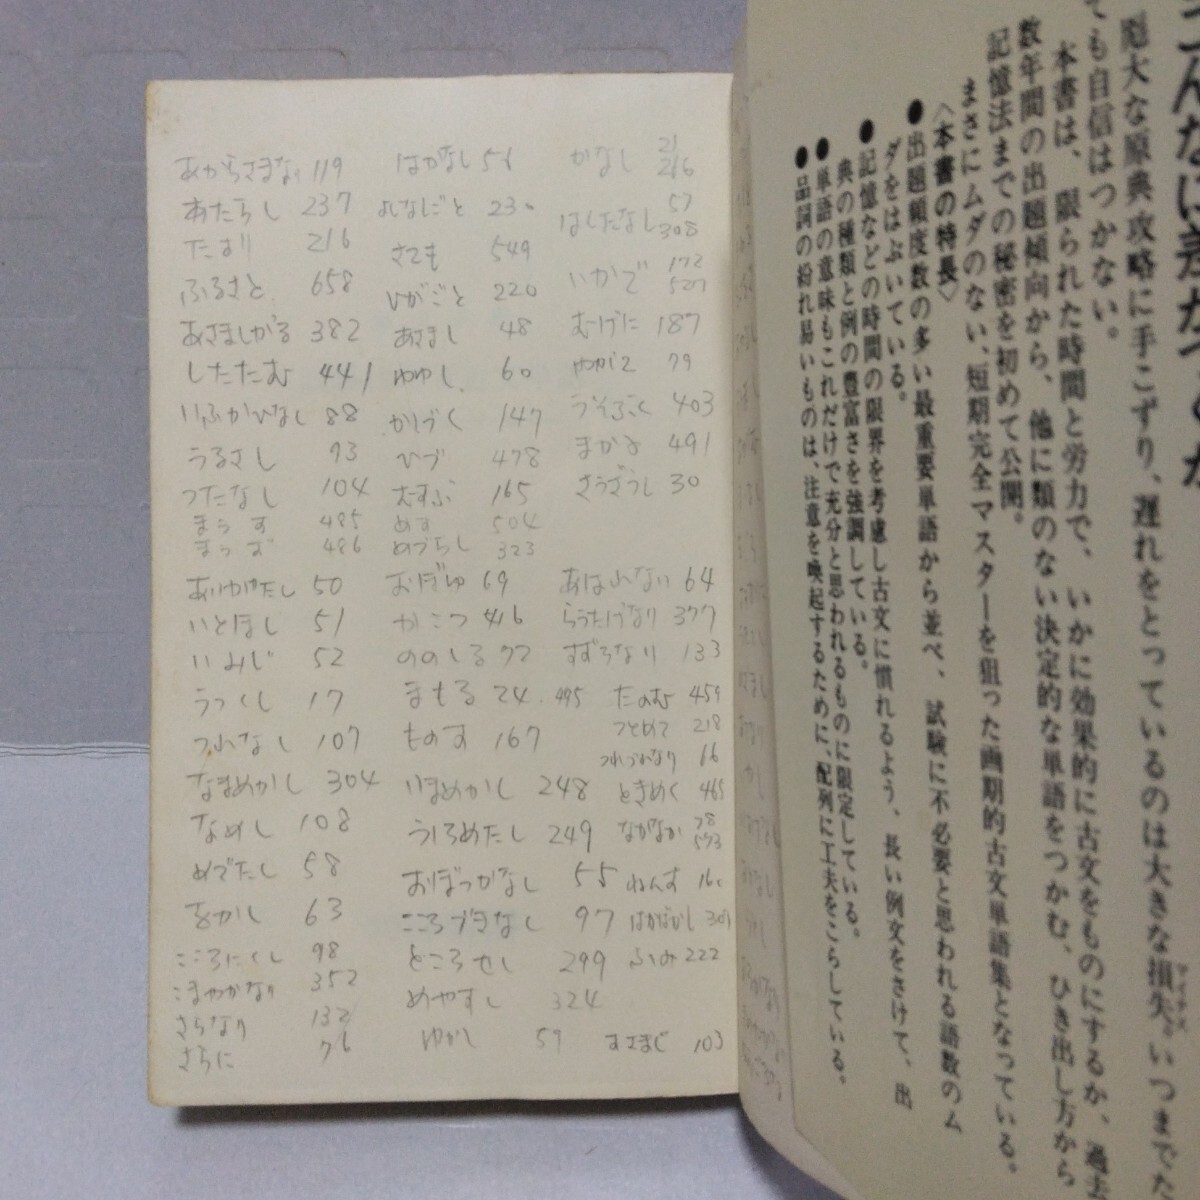 あからさまなり 119
あたらし 237
たまり 216
ふるさと 658
あさましがる 382
したたむ 441
いふかひなし 88
うるさし 93
つたなし 104
まうす 485
まうず 486
ありがたし 50
いとほし 51
いみじ 52
うつくし 17
つれなし 107
なまめかし 304
なめし 108
めでたし 58
をかし 63
こころにくし 98
こまやかなり 352
さらなり 132
さらに 76
はかなし 56
よしなしごと 230
さても 549
ひがごと 220
あさまし 48
ゆゆし 60
かしづく 147
ひづ 478
むすぶ 165
めす 504
めづらし 323
おぼゆ 69
かこつ 416
ののしる 72
まもる 24.495
ものす 167
いまめかし 248
うしろめたし 249
おぼつかなし 55
こころづきなし 97
ところせし 299
めやすし 324
ゆかし 59
かなし 21 216
はしたなし 57 308
いかで 172 527
むげに 187
やがて 79
うそぶく 403
まかる 491
さうざうし 30
あはれなり 64
らうたげなり 377
すずろなり 133
たのむ 459
つとめて 218
つれづれなり 66
ときめく 465
なかなか 78 573
ねんず
はかばかし
ふみ 222
すさまじ 103
彪大な原典攻略に手こずり、遅れをとっているのは大きな損失。いつまでた
っても自信はつかない。
本書は、限られた時間と労力で、いかに効果的に古文をものにするか、過去
数年間の出題傾向から、他に類のない決定的な単語をつかむ、ひき出し方から
記憶法までの秘密を初めて公開。
まさにムダのない、短期完全マスターを狙った画期的古文単語集となっている。
〈本書の特長〉
●出題頻度数の多い最重要単語から並べ、試験に不必要と思われる語数のム
ダをはぶいている。
●記憶などの時間の限界を考慮し古文に慣れるよう、長い例文をさけて、出
典の種類と例の豊富さを強調している。
●単語の意味もこれだけで充分と思われるものに限定している。
●品詞の紛れ易いものは、注意を喚起するために、配列に工夫をこらしている。